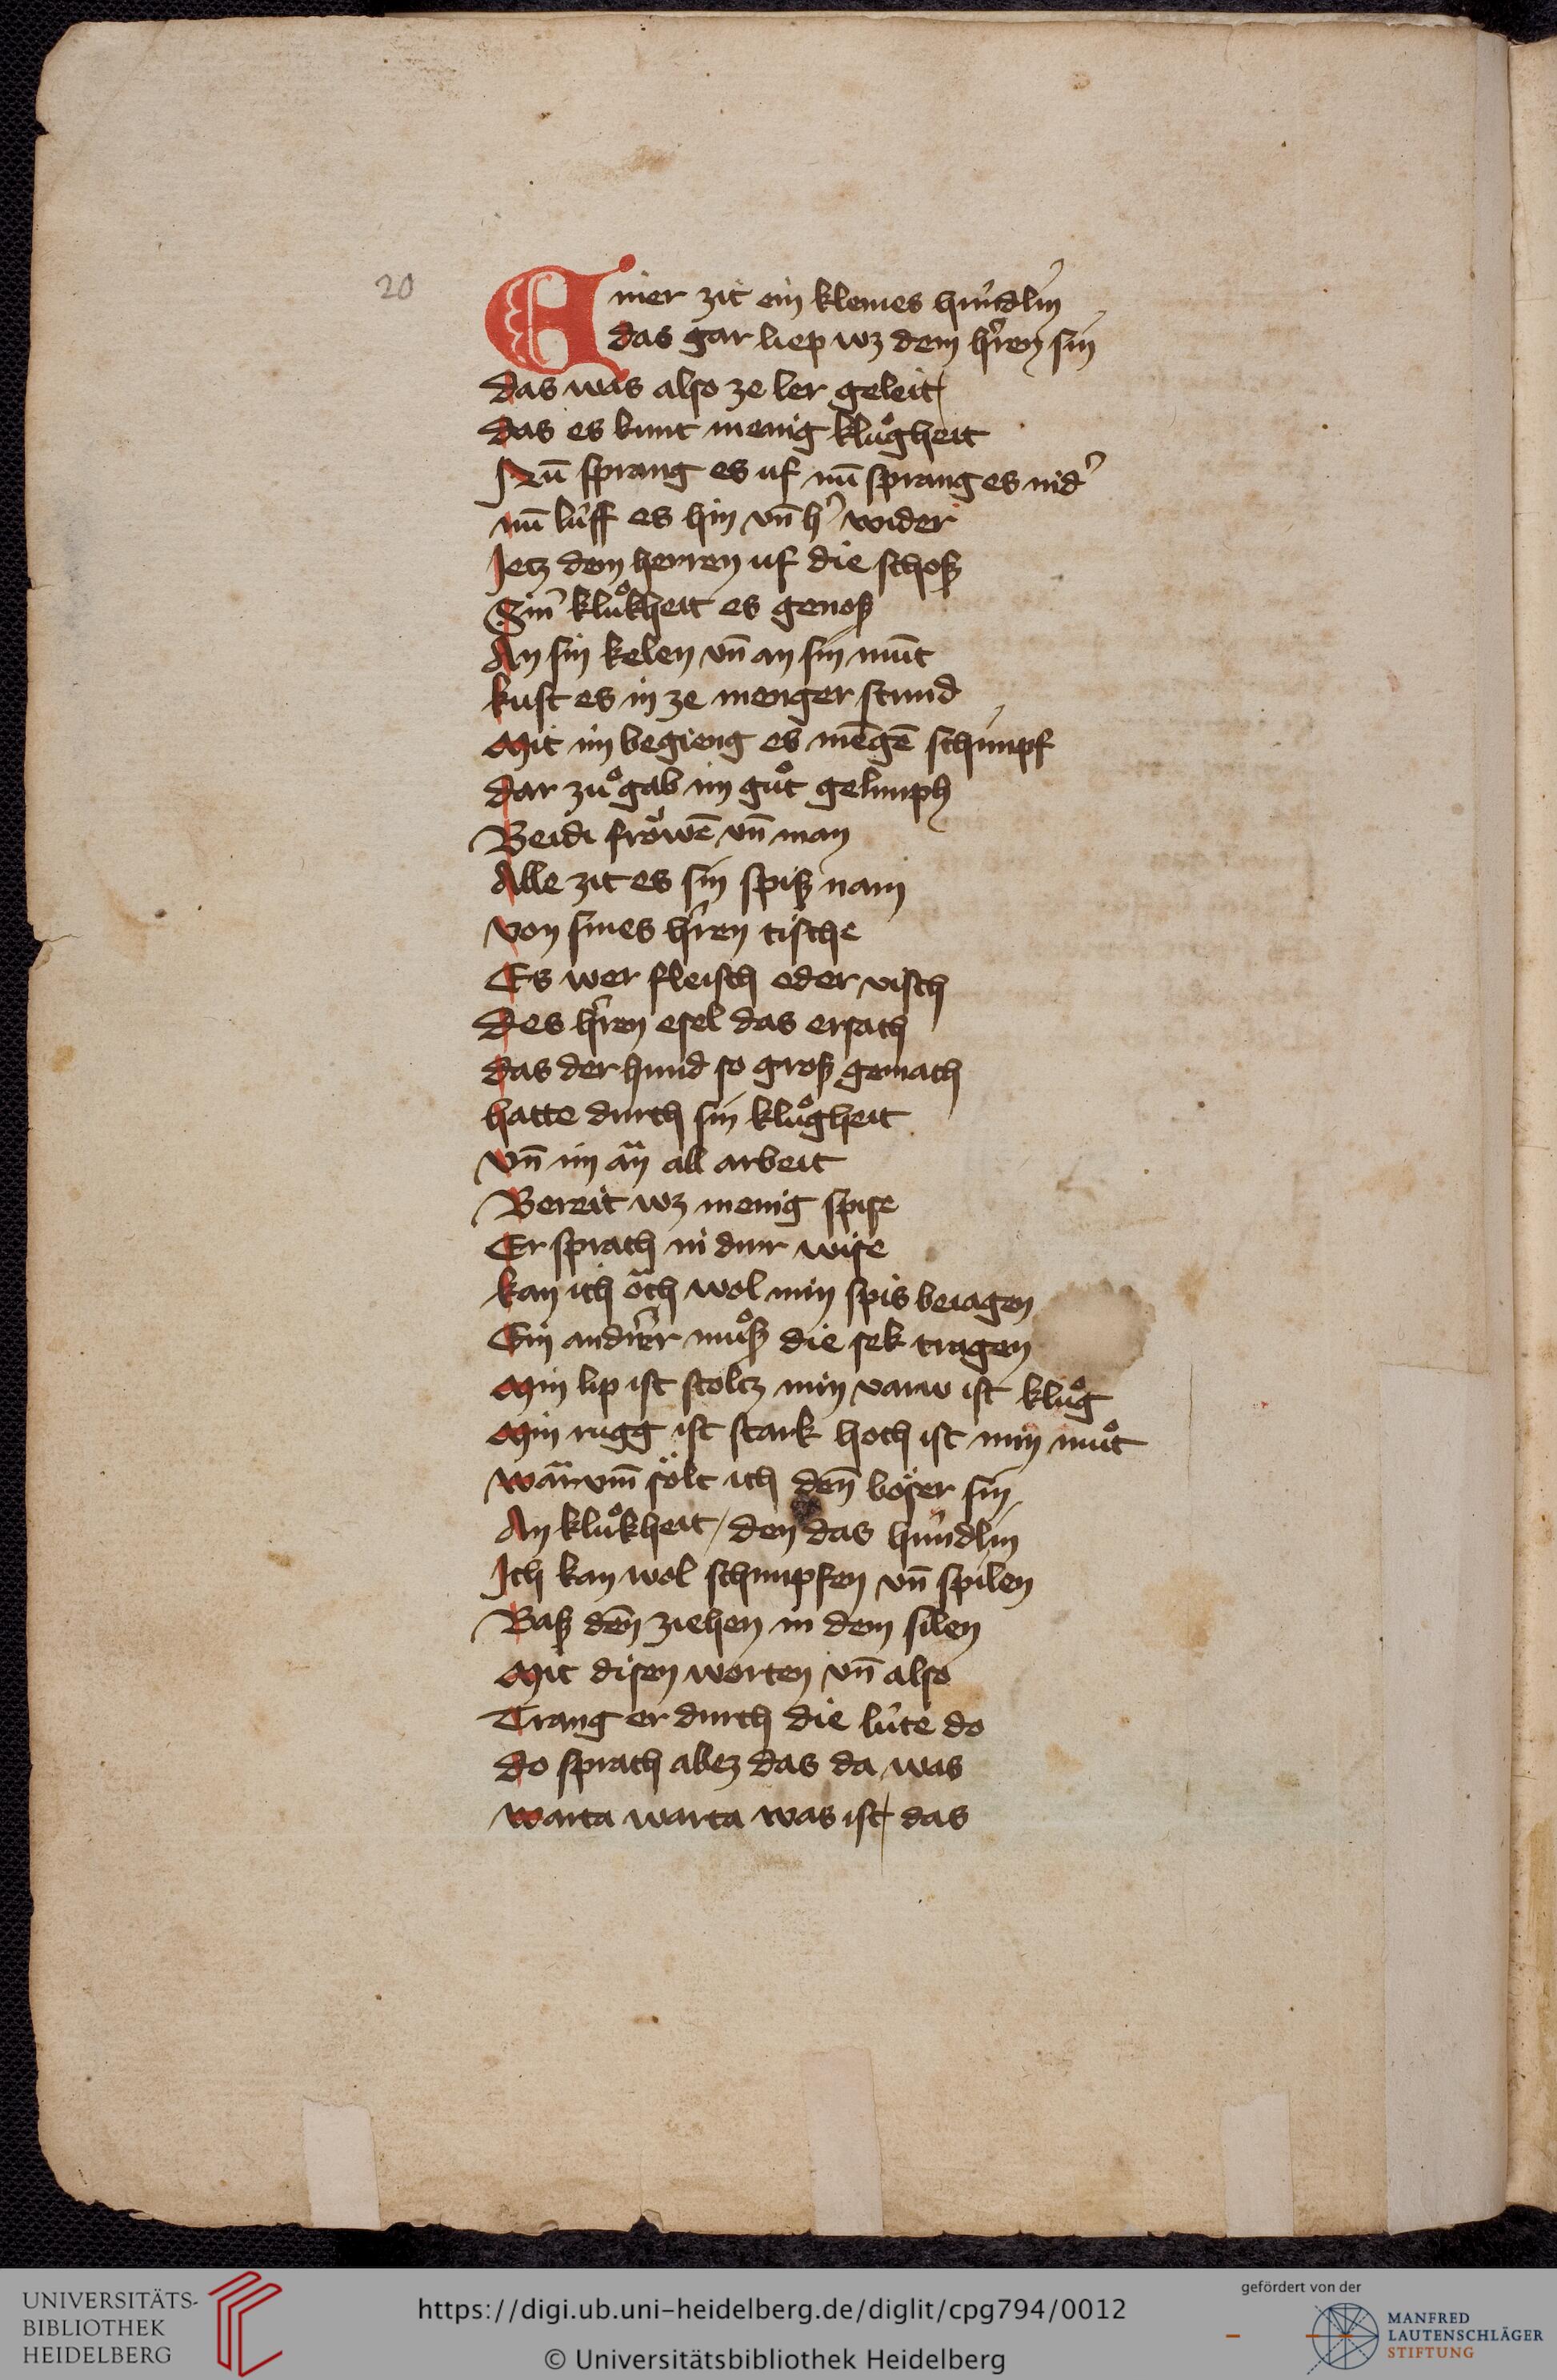 20
Einer zit ein kleines hu̍ndlin
das gar liep wz dem hr̍en sin
das was also ze ler geleit
das es kunt menig klůgheit
Nū sprang es uf nū sprang es nid̍
nū lu̍ff es hin vn̄ h̍ wider
Jetz dem herren uf die schoß
Sin̍ klůkheit es genoß
An sin kelen vn̄ an sin mūt
kust es in ze menger stund
Mit im begieng es mēgē schimpf
dar zů gab im gůt gelimph
Beidi frőwē vn̄ man
Alle zit es sin spiß nam
von sines hr̍en tische
Es wer fleisch oder visch
Des hr̍en esel das ersach
das der hund so groß gemach
hatte durch sin klůgheit
vn̄ im än all arbeit
Bereit wz menig spise
Er sprach in dirr wise
kan ich öch wol min spis beiagen
Ein andr̍er můß die sek tragen
Min lip ist stoltz min varw ist klůg
Min rugg ist stark hoch ist min můt
wär vm̄ sölt ich den̄ böser sin
An klůkheit / den das hu̍ndlin
Ich kan wol schimpfen vn̄ spilen
Baß den̄ ziehen in dem silen
Mit disen worten vn̄ also
Trang er durch die lu̍te do
do sprach alez das da was
warta warta was ist das
UNIVERSITÄTS-
BIBLIOTHEK
HEIDELBERG
https://digi.ub.uni-heidelberg.de/diglit/cpg794/0012
© Universitätsbibliothek Heidelberg
gefördert von der
MANFRED
LAUTENSCHLÄGER
STIFTUNG